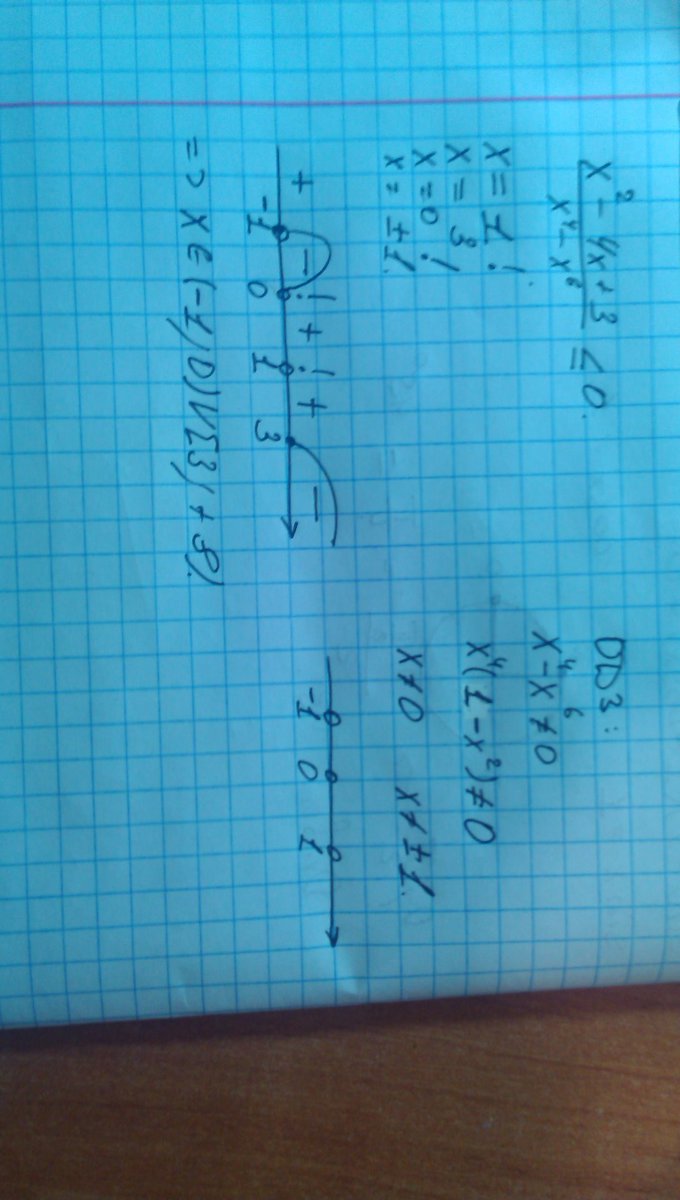 x² - 4x + 3
x⁴ - x⁶ ≤ 0.
x = 1 !
x = 3
x = 0 !
x = ± 1.
+ - ! + ! + -
-1 0 1 3
=> x ∈ (-1; 0) ∪ [3; + ∞).
ОДЗ:
x⁴ - x⁶ ≠ 0
x⁴(1 - x²) ≠ 0
x ≠ 0 x ≠ ± 1.
-1 0 1